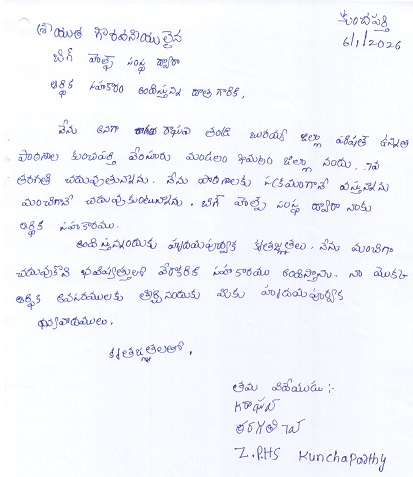 కుంచిపర్తి
6/1/2026
శ్రీయుత గౌరవనీయులైన
బిగ్ హెల్ప్ సంస్థ ద్వారా
ఆర్థిక సహకారం అందిస్తున్న దాత గారికి,
నేను అనగా రాఘవ తండ్రి జిల్లా పరిషత్ ఉన్నత
పాఠశాల కుంచపర్తి వేంసూరు మండలం ఖమ్మం జిల్లా నందు. 7వ
తరగతి చదువుతున్నాను. నేను పాఠశాలకు సక్రమంగానే వస్తున్నాను
మంచిగానే చదువుకుంటున్నాను. బిగ్ హెల్ప్ సంస్థ ద్వారా నాకు
ఆర్థిక సహకారము.
అందిస్తున్నందుకు హృదయపూర్వక కృతజ్ఞతలు. నేను మంచిగా
చదువుకొని భవిష్యత్తులో వేరొకరికి సహకారము అందిస్తాను. నా యొక్క
ఆర్థిక అవసరములకు తీర్చినందుకు మీకు హృదయపూర్వక
ధన్యవాదములు.
కృతజ్ఞతలతో,
తమ విధేయుడు:-
రాఘవ
తరగతి 7వ
Z.P.HS Kunchaparthy